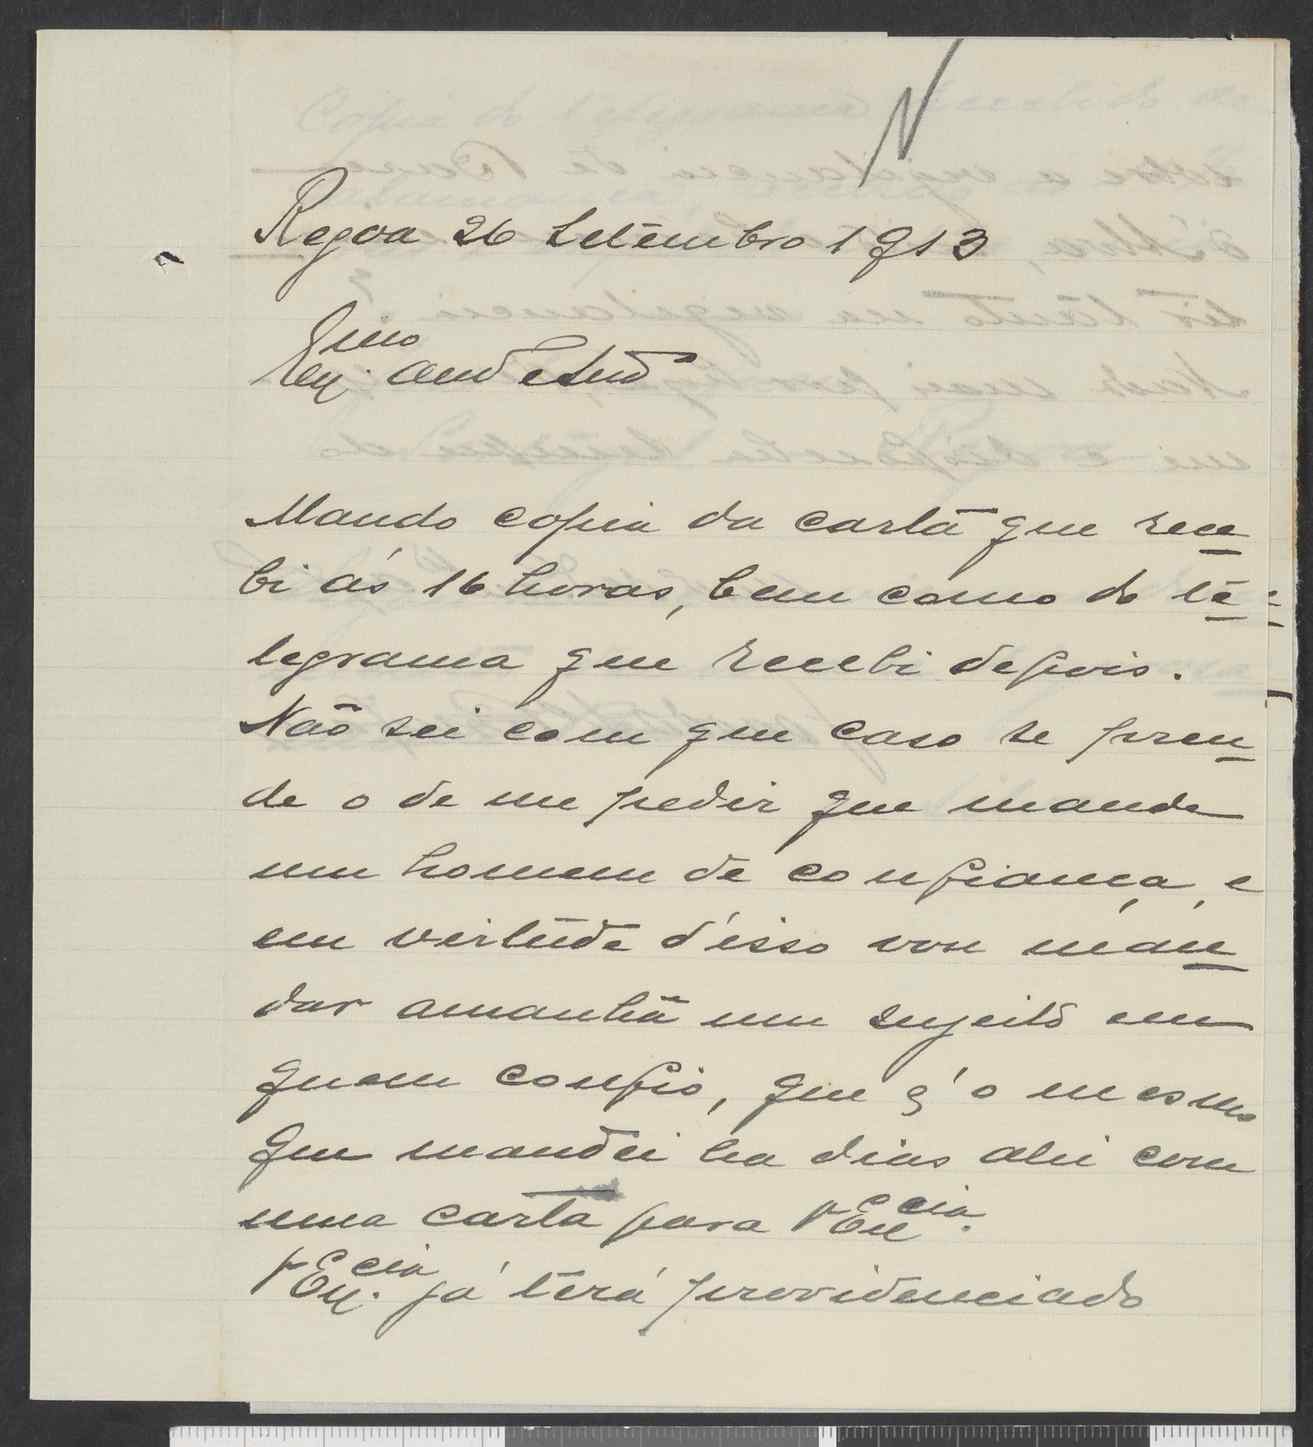 N
Regoa 26 Setembro 1913
Exmo
Am.º e Snr.
Mando copia da carta que rece-
bi ás 16 horas, bem como do te-
legrama que recebi depois.
Não sei com que caso se pren-
de o de me pedir que mande
um homem de confiança, e
em virtude d'isso vou man-
dar amanhã um sujeito em
quem confio, que é o mesmo
que mandei ha dias ahi com
uma carta para V Excia.
V Excia. já terá providenciado